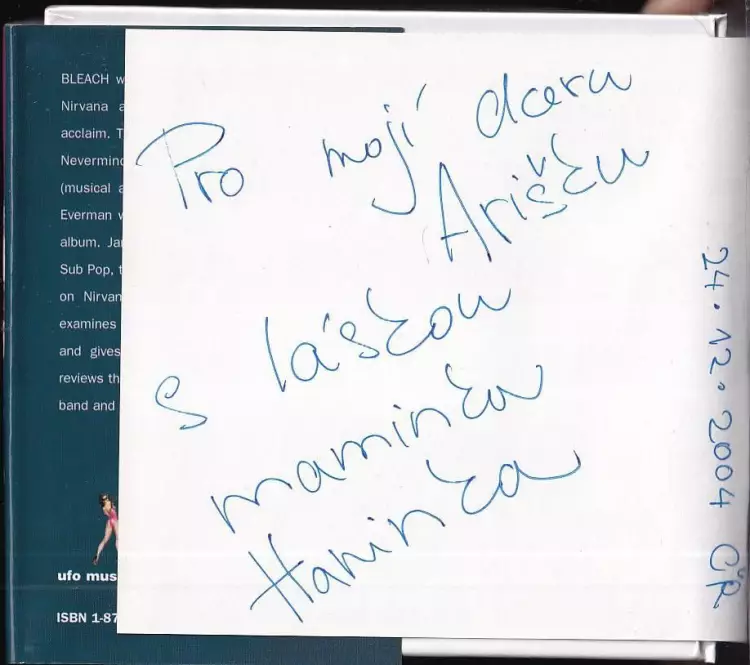 BLEACH w
Nirvana a
acclaim. T
Nevermind
(musical a
Everman w
album. Ja
Sub Pop, t
on Nirvan
examines
and gives
reviews th
band and
ufo mus
ISBN 1-87
Pro mojí dceru
Arišku
s láskou
maminka
Haninka
24.12.2004 ČR